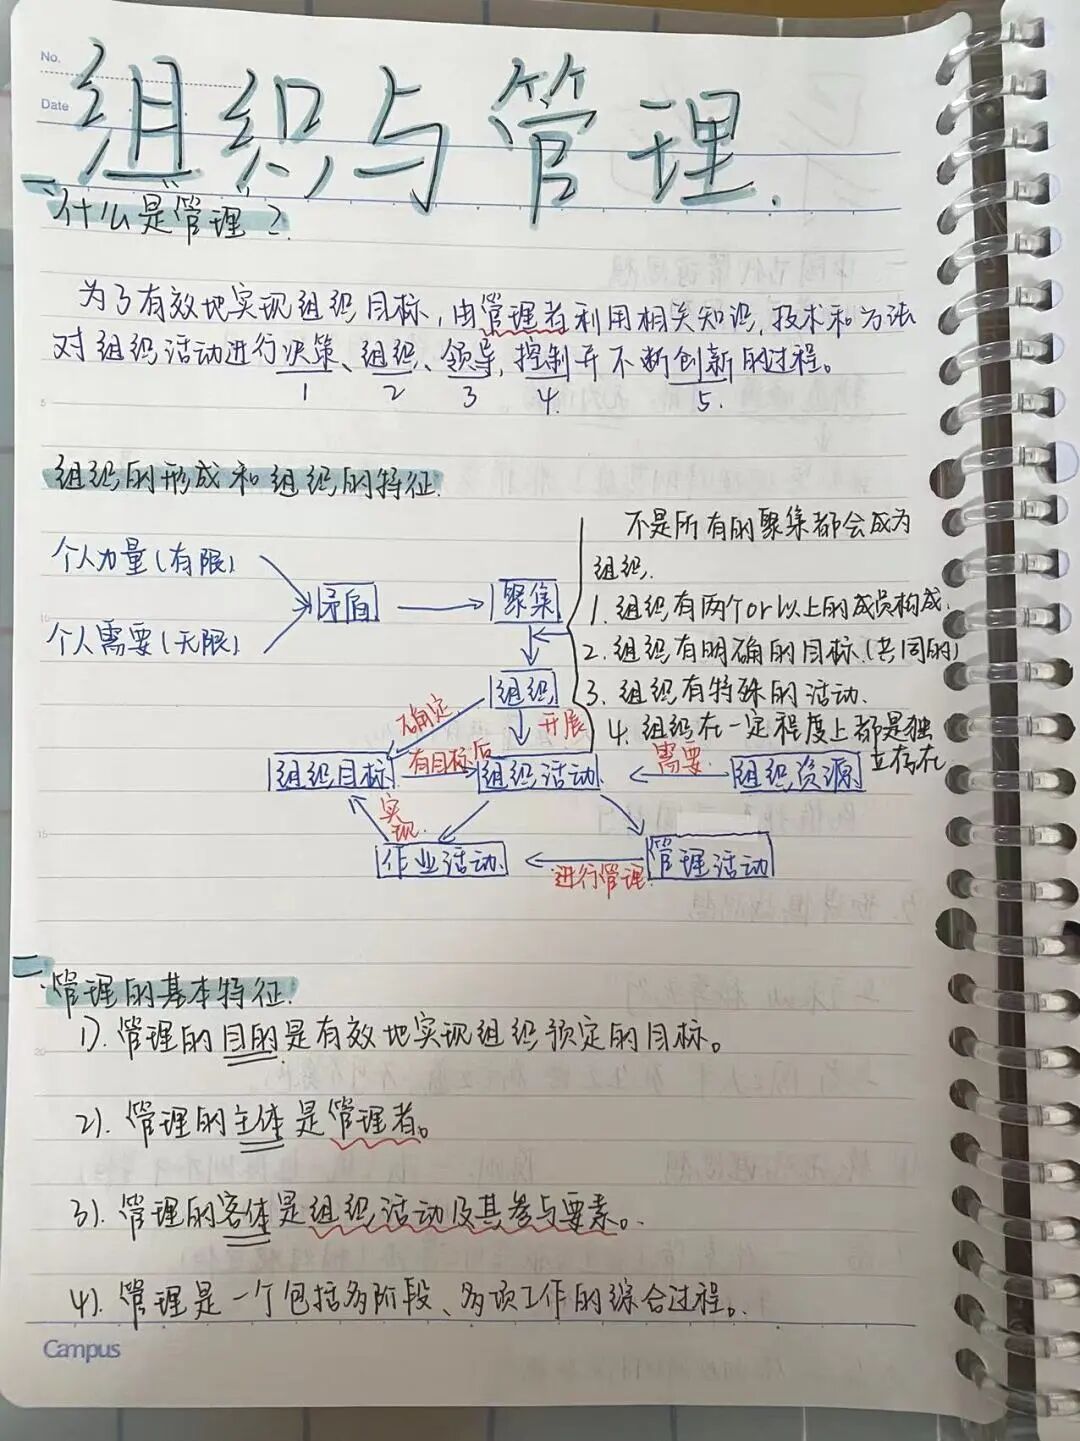 No.
Date
组织与管理.
一.什么是"管理"?
为了有效地实现组织目标,由管理者利用相关知识,技术和方法
对组织活动进行决策、组织、领导,控制并不断创新的过程。
1 2 3 4. 5.
组织的形成和组织的特征.
个人力量(有限)
个人需要(无限)
矛盾
聚集
不是所有的聚集都会成为
组织.
1. 组织有两个or以上的成员构成.
2. 组织有明确的目标.(共同的)
3. 组织有特殊的活动.
4. 组织在一定程度上都是独
立存在
组织
确定
开展
组织目标
有目标后
组织活动
需要
组织资源
实现
作业活动
进行管理
管理活动
二.管理的基本特征.
1). 管理的目的是有效地实现组织预定的目标。
2). 管理的主体是管理者。
3). 管理的客体是组织活动及其参与要素。
4). 管理是一个包括多阶段、多项工作的综合过程。
Campus